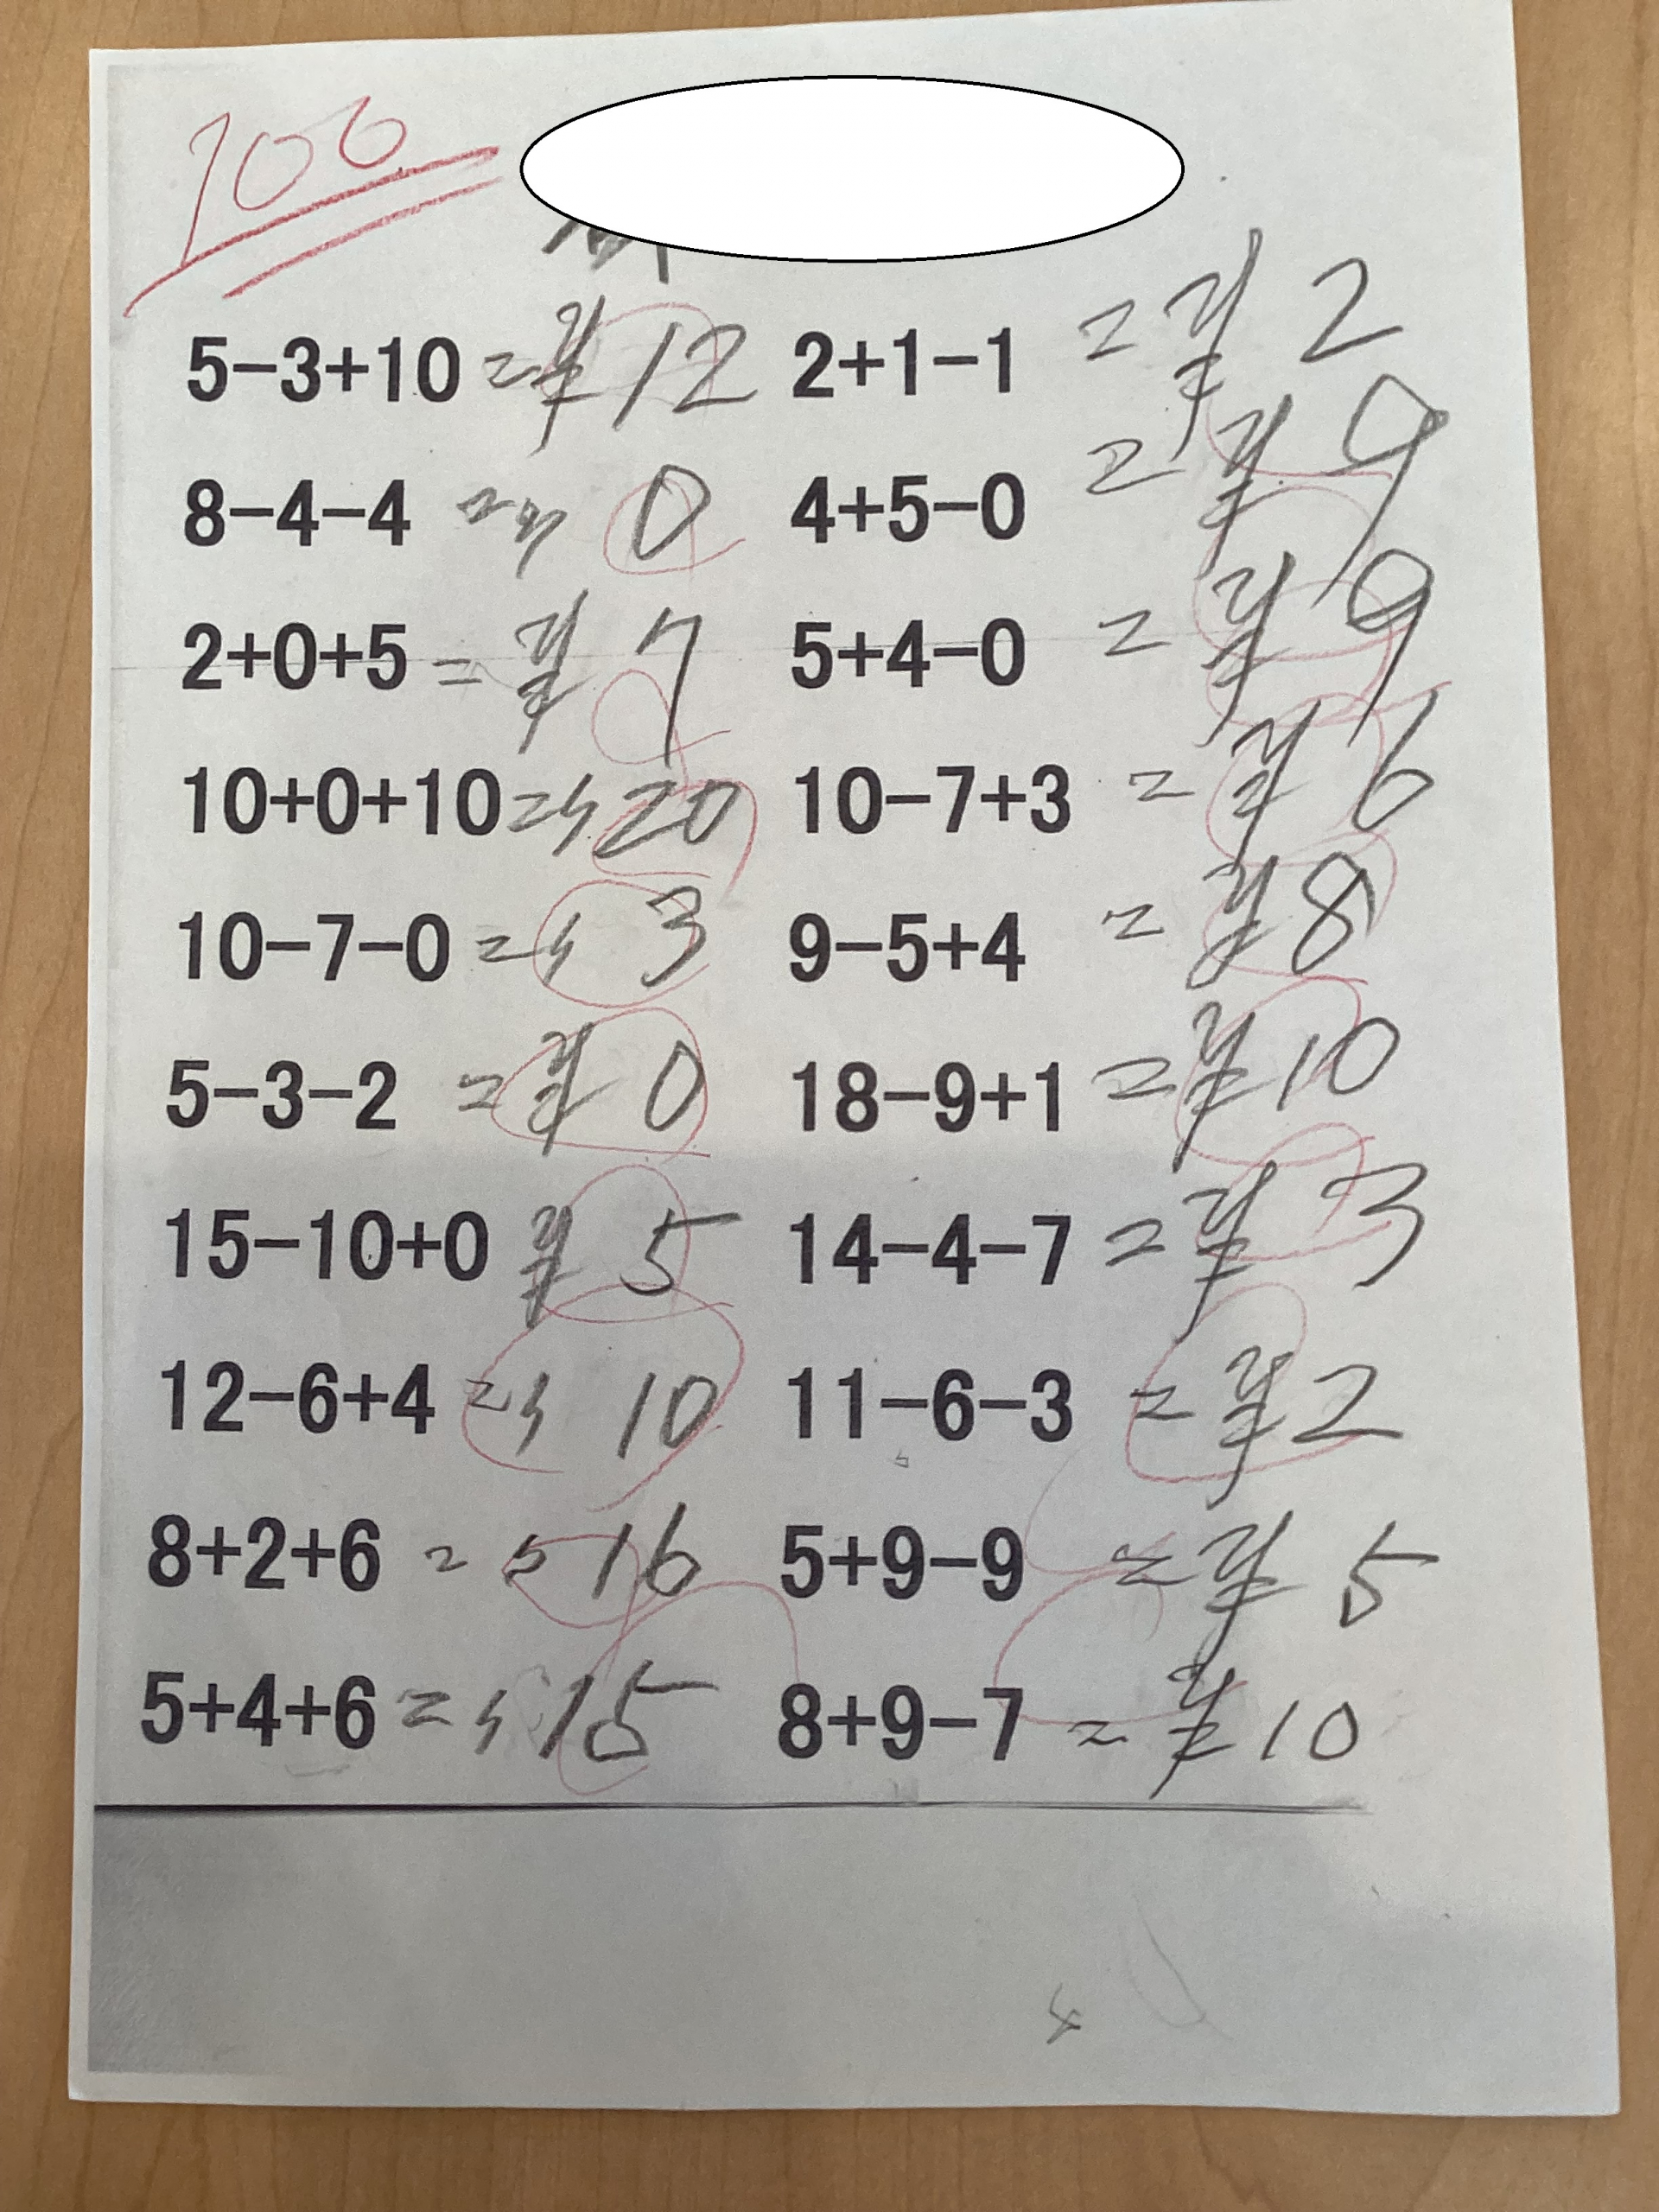 100
5-3+10 =¥12 2+1-1 =¥2
8-4-4 =¥0 4+5-0 =¥9
2+0+5 =¥7 5+4-0 =¥9
10+0+10 =20 10-7+3 =¥6
10-7-0 =3 9-5+4 =¥8
5-3-2 =¥0 18-9+1 =¥10
15-10+0 ¥5 14-4-7 =¥3
12-6+4 =10 11-6-3 =¥2
8+2+6 =16 5+9-9 =¥5
5+4+6 =15 8+9-7 =¥10